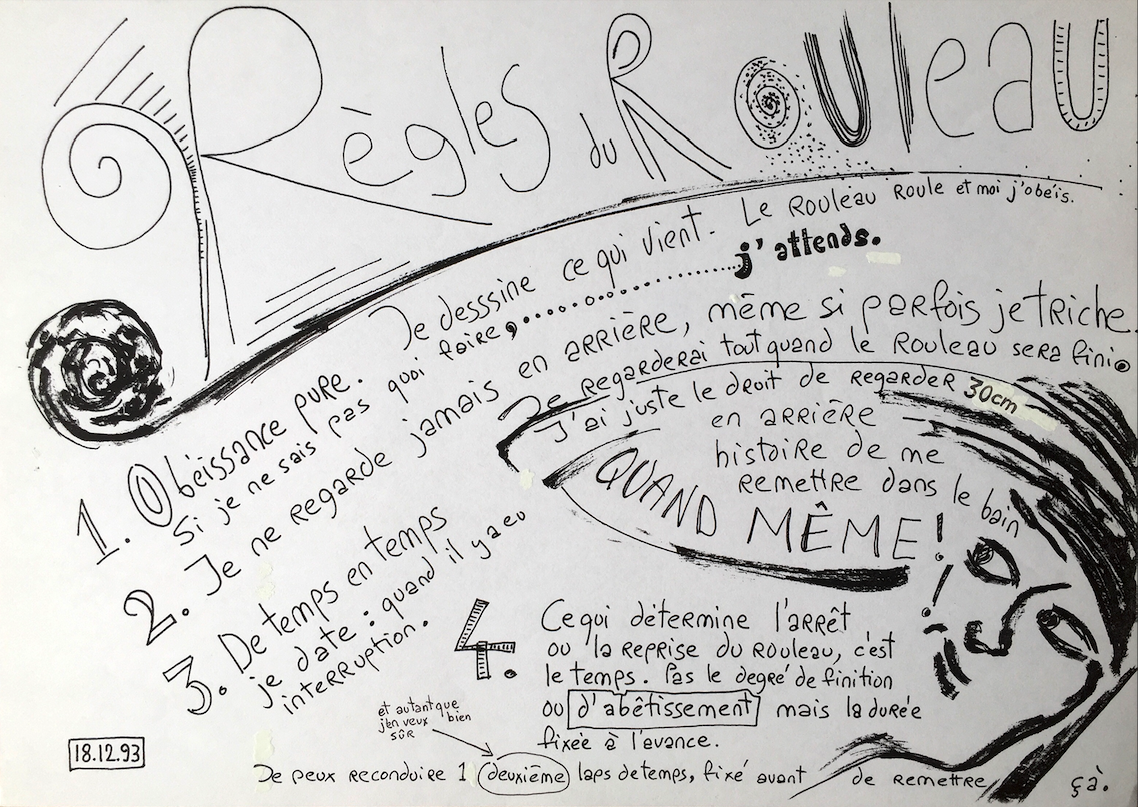 Règles du Rouleau
1. Obéissance pure. Je desssine ce qui vient. Le Rouleau Roule et moi j'obéis.
Si je ne sais pas quoi faire, .................... j'attends.
2. Je ne regarde jamais en arrière, même si parfois je triche.
Je regarderai tout quand le Rouleau sera fini.
J'ai juste le droit de regarder 30cm
en arrière
histoire de me
remettre dans le bain
QUAND MÊME!
3. De temps en temps
je date : quand il y a eu
interruption.
4. Ce qui détermine l'arrêt
ou la reprise du rouleau, c'est
le temps. Pas le degré de finition
ou d'abêtissement mais la durée
fixée à l'avance.
et autant que
j'en veux bien
sûr
18.12.93
Je peux reconduire 1 deuxième laps de temps, fixé avant de remettre çà.